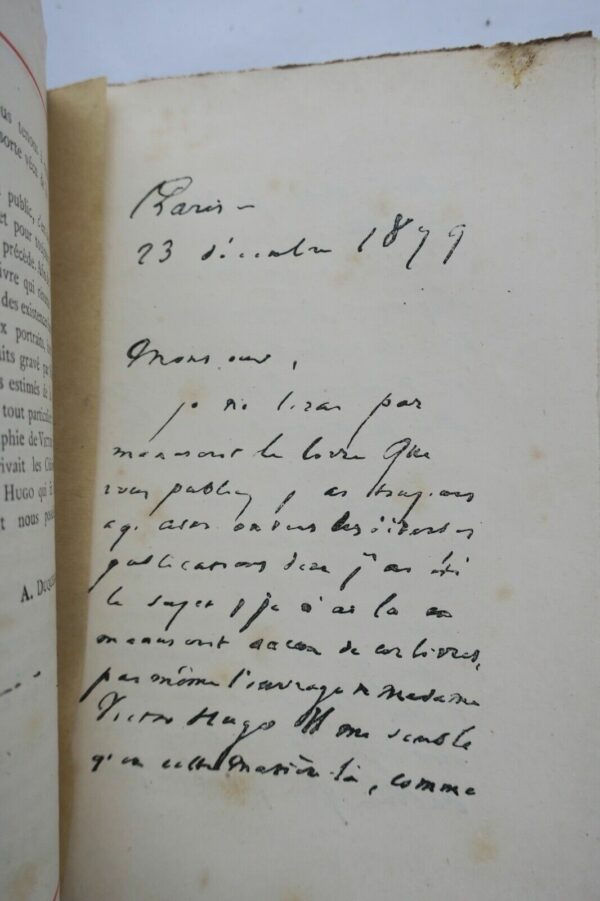 ous tenons à
sorte
public,
et pour
précède,
ivre qui
des existences
x portraits,
uits gravé par
s estimés de
tout particu
phie de Victo
rivait les
Hugo qui
t nous
A. Duq
Paris –
23 décembre 1879
Monsieur,
je ne lirai pas
manuscrit le livre que
vous publiez, j'ai toujours
agi ainsi envers les diverses
publications dont j'ai été
le sujet, je n'ai lu en
manuscrit aucun de ces livres,
pas même l'ouvrage de Madame
Victor Hugo. Il me semble
qu'en cette matière-là, comme